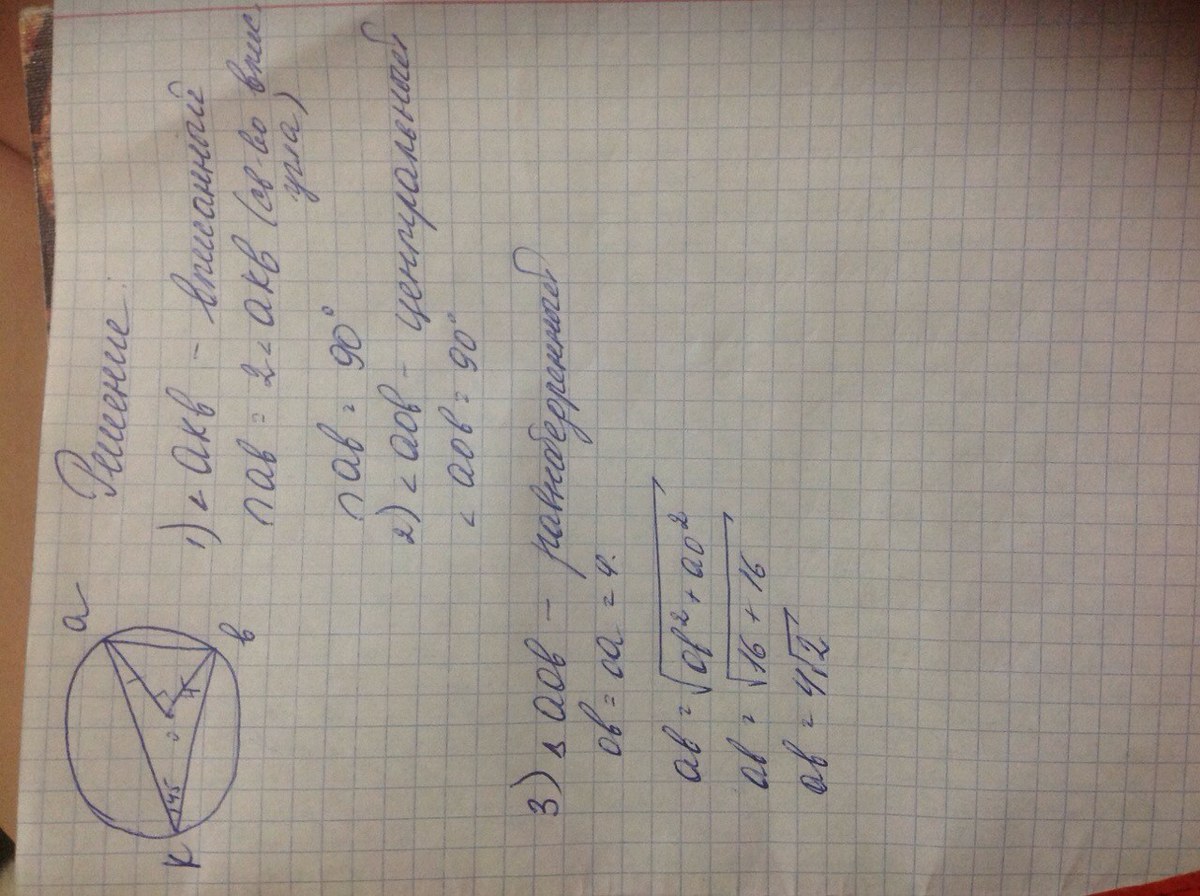 Решение:
1) ∠ акв – вписанный
∩ ав = 2∠ акв (св-во впис
угла)
∩ ав = 90°
2) ∠ аов – центральный
∠ аов = 90°
3) Δ аов – равнобедренный
ов = оа = 4.
ав = √ов² + ао²
ав = √16 + 16
ав = 4√2
а
в
к
о
45
4